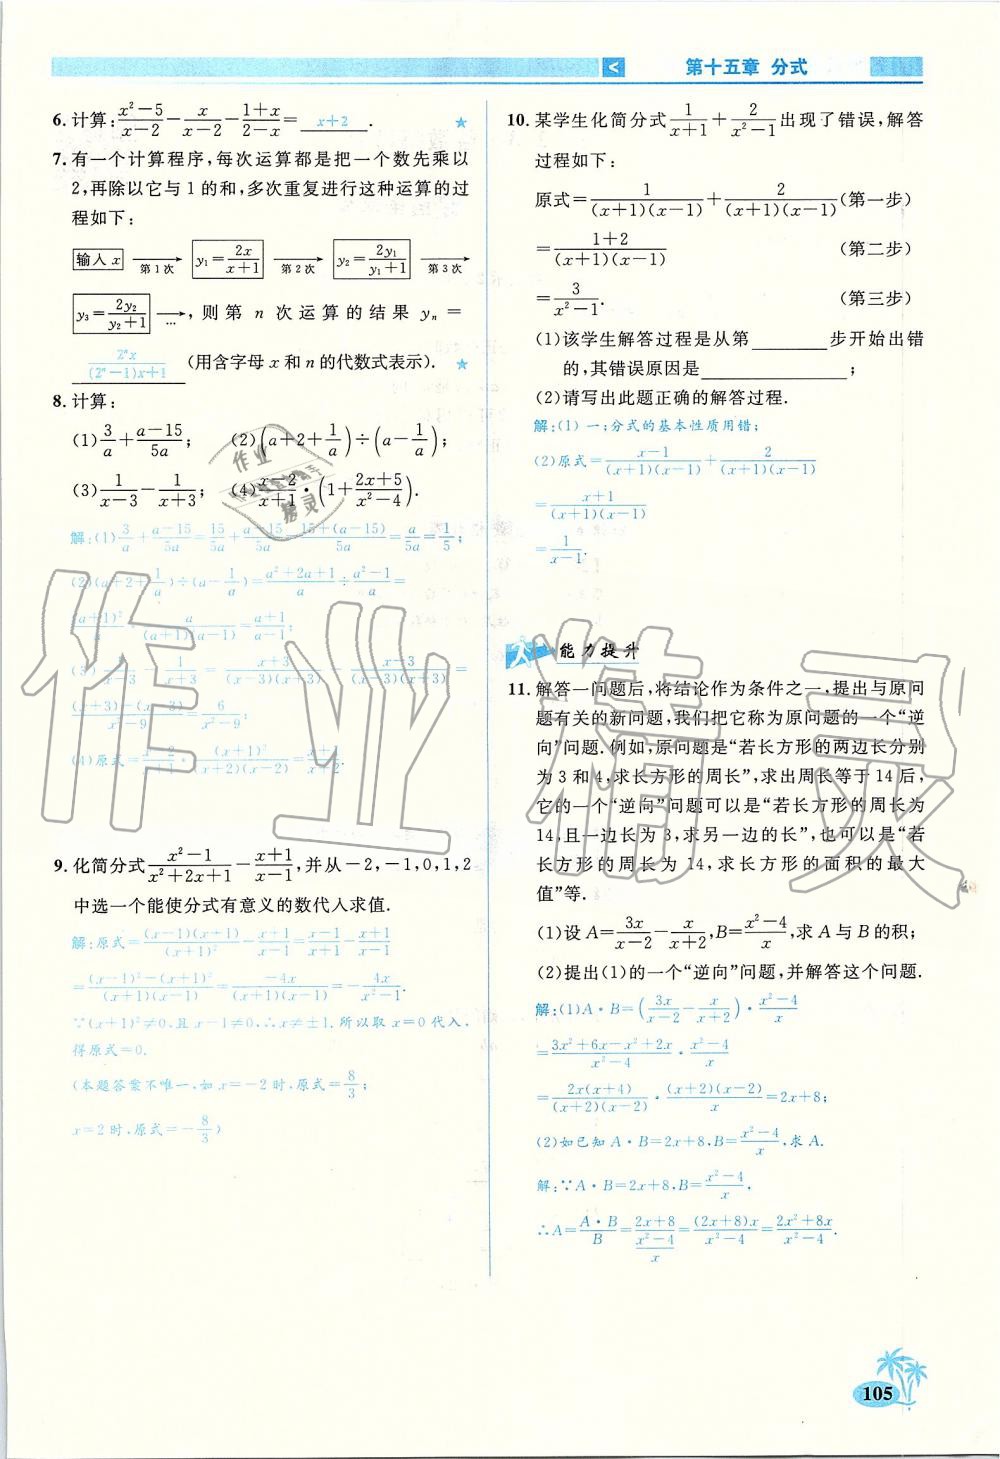 < 第十五章 分式
6. 计算:(x²−5)/(x−2)−x/(x−2)−(1+x)/(2−x)= x+2 . ★
7. 有一个计算程序,每次运算都是把一个数先乘以
2,再除以它与1的和,多次重复进行这种运算的过
程如下:
输入x →第1次 y₁=2x/(x+1) →第2次 y₂=2y₁/(y₁+1) →第3次
y₃=2y₂/(y₂+1) →…,则第n次运算的结果 yₙ=
2ⁿx/((2ⁿ−1)x+1) (用含字母x和n的代数式表示). ★
8. 计算:
(1)3/a+(a−15)/5a; (2)(a+2+1/a)÷(a−1/a);
(3)1/(x−3)−1/(x+3); (4)(x−2)/(x+1)·(1+(2x+5)/(x²−4)).
解:(1)3/a+(a−15)/5a=15/5a+(a−15)/5a=(15+(a−15))/5a=a/5a=1/5;
(2)(a+2+1/a)÷(a−1/a)=(a²+2a+1)/a÷(a²−1)/a=
(a+1)²/a·a/((a+1)(a−1))=(a+1)/(a−1);
(3)1/(x−3)−1/(x+3)=(x+3)/((x−3)(x+3))−(x−3)/((x−3)(x+3))=
((x+3)−(x−3))/(x²−9)=6/(x²−9);
(4)原式=(x−2)/(x+1)·(x+1)²/((x+2)(x−2))=(x+1)/(x+2).
9. 化简分式(x²−1)/(x²+2x+1)−(x+1)/(x−1),并从−2,−1,0,1,2
中选一个能使分式有意义的数代入求值.
解:原式=(x−1)(x+1)/(x+1)²−(x+1)/(x−1)=(x−1)/(x+1)−(x+1)/(x−1)
=((x−1)²−(x+1)²)/((x+1)(x−1))=−4x/((x+1)(x−1))=−4x/(x²−1).
∵(x+1)²≠0,且x−1≠0,∴x≠±1.所以取x=0代入,
得原式=0.
(本题答案不唯一,如x=−2时,原式=8/3;
x=2时,原式=−8/3)
10. 某学生化简分式1/(x+1)+2/(x²−1)出现了错误,解答
过程如下:
原式=1/((x+1)(x−1))+2/((x+1)(x−1)) (第一步)
=(1+2)/((x+1)(x−1)) (第二步)
=3/(x²−1). (第三步)
(1)该学生解答过程是从第________步开始出错
的,其错误原因是______________;
(2)请写出此题正确的解答过程.
解:(1)一;分式的基本性质用错;
(2)原式=(x−1)/((x+1)(x−1))+2/((x+1)(x−1))
=(x+1)/((x+1)(x−1))
=1/(x−1).
能力提升
11. 解答一问题后,将结论作为条件之一,提出与原问
题有关的新问题,我们把它称为原问题的一个“逆
向”问题.例如,原问题是“若长方形的两边长分别
为3和4,求长方形的周长”,求出周长等于14后,
它的一个“逆向”问题可以是“若长方形的周长为
14,且一边长为3,求另一边的长”,也可以是“若
长方形的周长为14,求长方形的面积的最大
值”等.
(1)设A=3x/(x−2)−x/(x+2),B=(x²−4)/x,求A与B的积;
(2)提出(1)的一个“逆向”问题,并解答这个问题.
解:(1)A·B=(3x/(x−2)−x/(x+2))·(x²−4)/x
=(3x²+6x−x²+2x)/(x²−4)·(x²−4)/x
=2x(x+4)/((x+2)(x−2))·(x+2)(x−2)/x=2x+8;
(2)如已知A·B=2x+8,B=(x²−4)/x,求A.
解:∵A·B=2x+8,B=(x²−4)/x,
∴A=(A·B)/B=(2x+8)/((x²−4)/x)=(2x+8)x/(x²−4)=(2x²+8x)/(x²−4).
105
作业精灵
作业
精灵